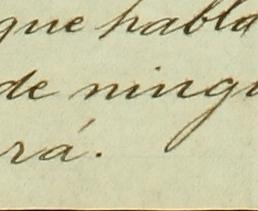 que habla
de ningu
rá.